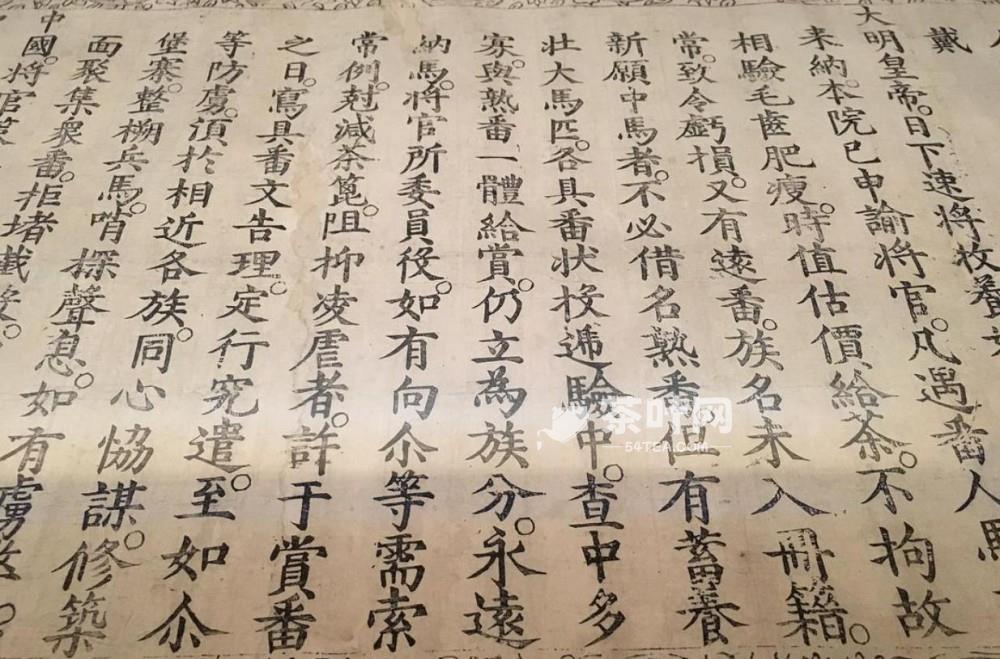 戴
大明皇帝。日下速將牧養
来納。本院已申諭將官。凡遇番人
相驗毛齒肥瘦。時值估價給茶。不拘故
常。致令虧損。又有遠番。族名未入冊籍。
新願中馬者。不必借名熟番。但有蓄養
壯大馬匹。各具番狀投遞驗中。查中多
寡。與熟番一體給賞。仍立為族分。永遠
納馬。將官所委員役。如有向尒等需索
常例。尅減茶篦。阻抑凌虐者。許于賞番
之日。寫具番文告理。定行究遣。至如尒
等防虜。湏於相近各族。同心協謀。修築
堡寨。整搠兵馬。哨探聲息。如有虜
面聚集衆番。拒堵截殺。
中國。將官
茶叶网
54TEA.COM